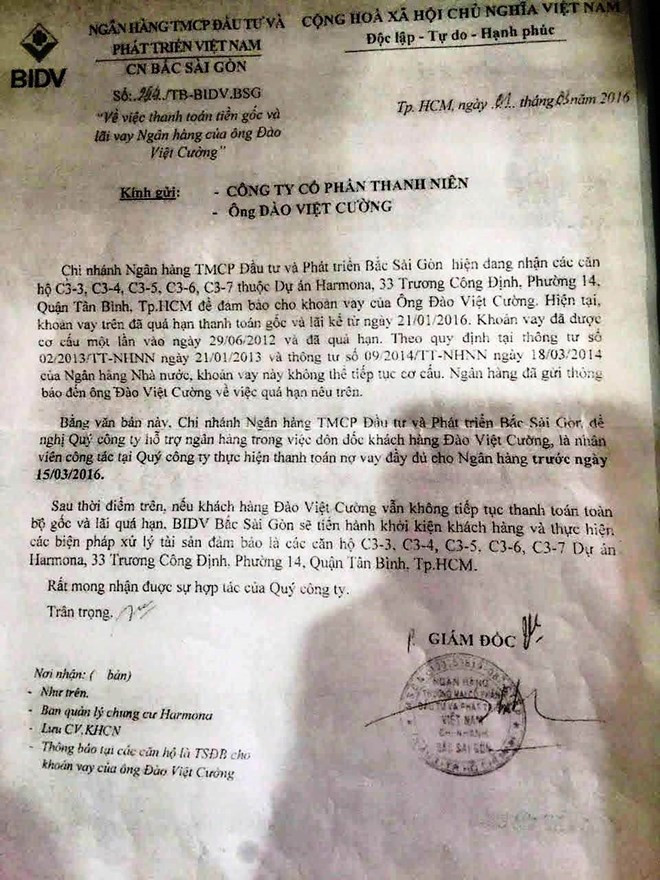 BIDV
NGÂN HÀNG TMCP ĐẦU TƯ VÀ
PHÁT TRIỂN VIỆT NAM
CN BẮC SÀI GÒN
CỘNG HOÀ XÃ HỘI CHỦ NGHĨA VIỆT NAM
Độc lập - Tự do - Hạnh phúc
Số: /TB-BIDV.BSG
Tp. HCM, ngày 01 tháng 03 năm 2016
"Về việc thanh toán tiền gốc và
lãi vay Ngân hàng của ông Đào
Việt Cường"
Kính gửi: - CÔNG TY CỔ PHẦN THANH NIÊN
- Ông ĐÀO VIỆT CƯỜNG
Chi nhánh Ngân hàng TMCP Đầu tư và Phát triển Bắc Sài Gòn hiện đang nhận các căn
hộ C3-3, C3-4, C3-5, C3-6, C3-7 thuộc Dự án Harmona, 33 Trương Công Định, Phường 14,
Quận Tân Bình, Tp.HCM để đảm bảo cho khoản vay của Ông Đào Việt Cường. Hiện tại,
khoản vay trên đã quá hạn thanh toán gốc và lãi kể từ ngày 21/01/2016. Khoản vay đã được
cơ cấu một lần vào ngày 29/06/2012 và đã quá hạn. Theo quy định tại thông tư số
02/2013/TT-NHNN ngày 21/01/2013 và thông tư số 09/2014/TT-NHNN ngày 18/03/2014
của Ngân hàng Nhà nước, khoản vay này không thể tiếp tục cơ cấu. Ngân hàng đã gửi thông
báo đến ông Đào Việt Cường về việc quá hạn nêu trên.
Bằng văn bản này, Chi nhánh Ngân hàng TMCP Đầu tư và Phát triển Bắc Sài Gòn, đề
nghị Quý công ty hỗ trợ ngân hàng trong việc đôn đốc khách hàng Đào Việt Cường, là nhân
viên công tác tại Quý công ty thực hiện thanh toán nợ vay đầy đủ cho Ngân hàng trước ngày
15/03/2016.
Sau thời điểm trên, nếu khách hàng Đào Việt Cường vẫn không tiếp tục thanh toán toàn
bộ gốc và lãi quá hạn. BIDV Bắc Sài Gòn sẽ tiến hành khởi kiện khách hàng và thực hiện
các biện pháp xử lý tài sản đảm bảo là các căn hộ C3-3, C3-4, C3-5, C3-6, C3-7 Dự án
Harmona, 33 Trương Công Định, Phường 14, Quận Tân Bình, Tp.HCM.
Rất mong nhận được sự hợp tác của Quý công ty.
Trân trọng,
GIÁM ĐỐC
NGÂN HÀNG
THƯƠNG MẠI CỔ PHẦN
ĐẦU TƯ VÀ PHÁT TRIỂN
VIỆT NAM
CHI NHÁNH
BẮC SÀI GÒN
Nơi nhận: ( bản)
- Như trên.
- Ban quản lý chung cư Harmona
- Lưu CV.KHCN
- Thông báo tại các căn hộ là TSĐB cho
khoản vay của ông Đào Việt Cường